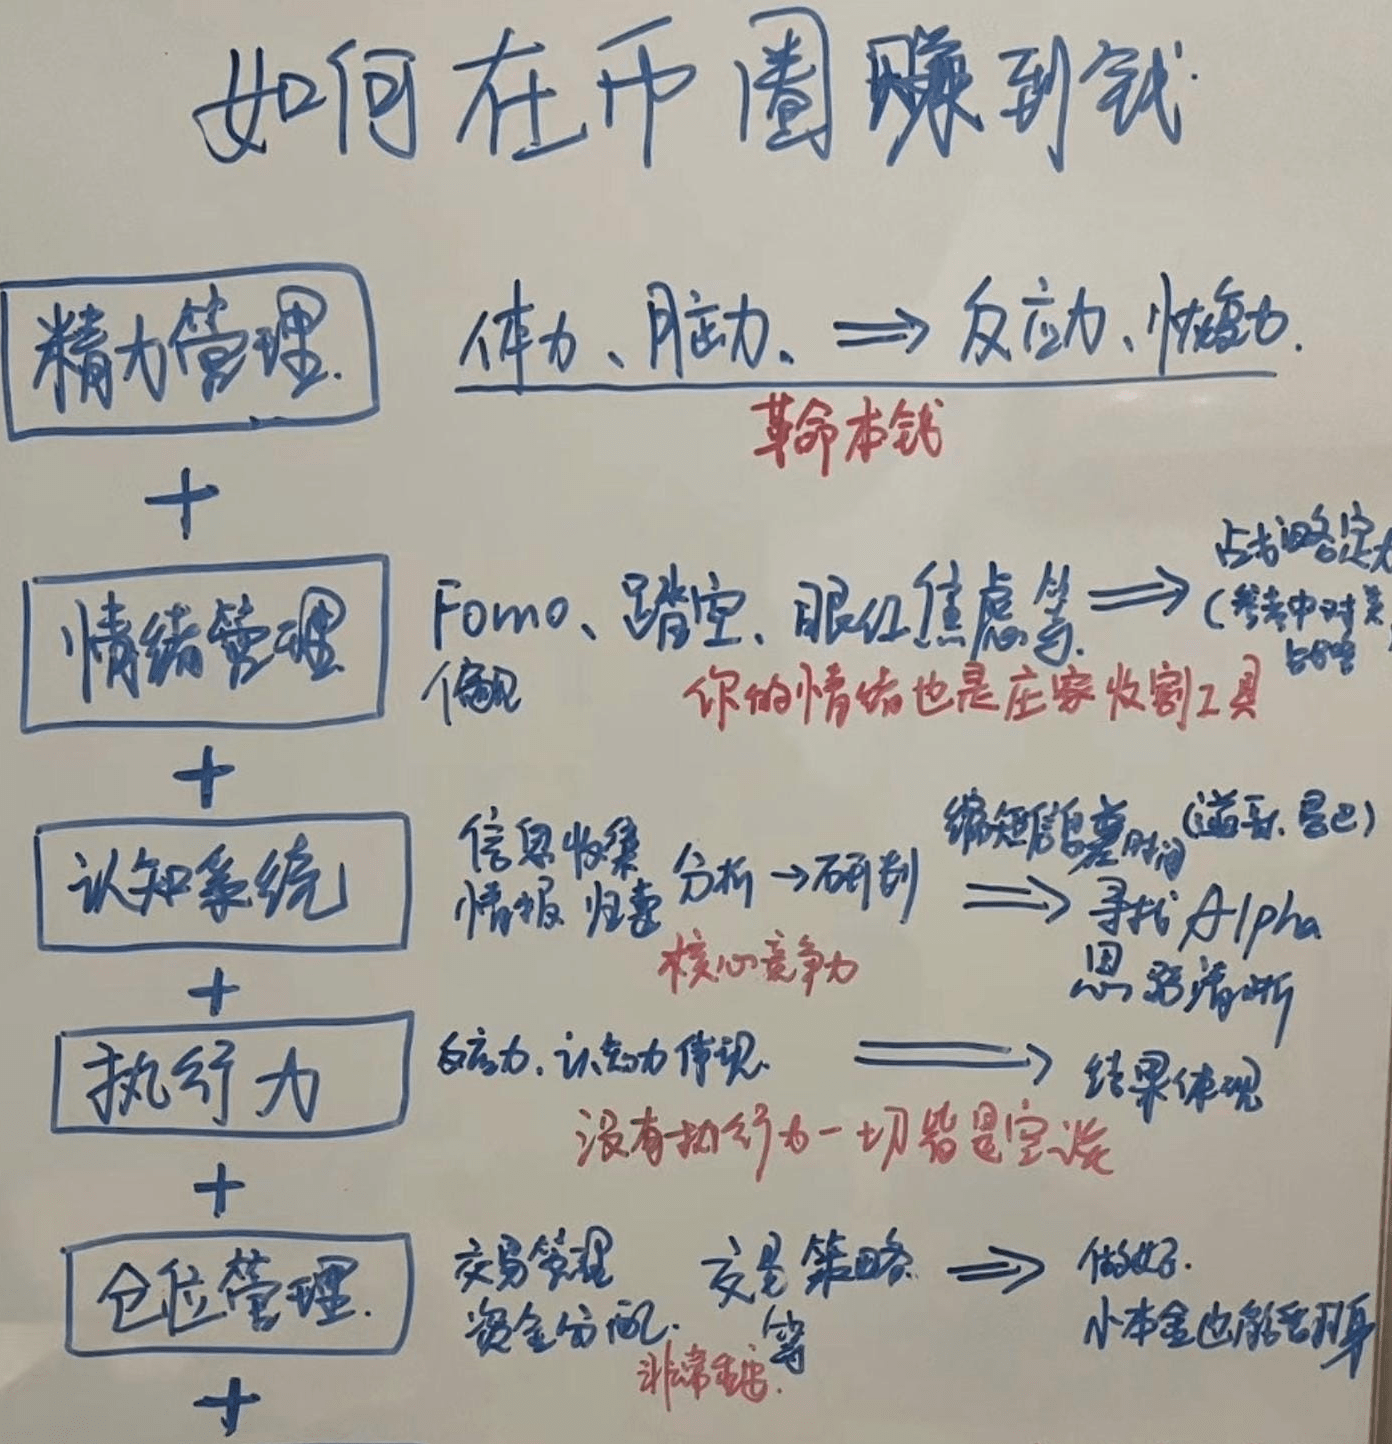 如何在币圈赚到钱
精力管理. 体力、脑力、 ⟹ 反应力、恢复力.
革命本钱
+
情绪管理 Fomo、踏空、眼红焦虑等. ⟹ 战略定
偏见 (参考中对美
战略
你的情绪也是庄家收割工具
+
认知系统 信息收集 分析→研判 ⟹ 缩短信息差时间
情报 归纳 寻找Alpha
思路清晰
核心竞争力
+
执行力 反应力、认知力体现. ⟹ 结果体现
没有执行力一切皆是空谈
+
仓位管理. 交易管理 交易策略 ⟹ 做好.
资金分配. 等 小本金也能翻身
非常重要.
+